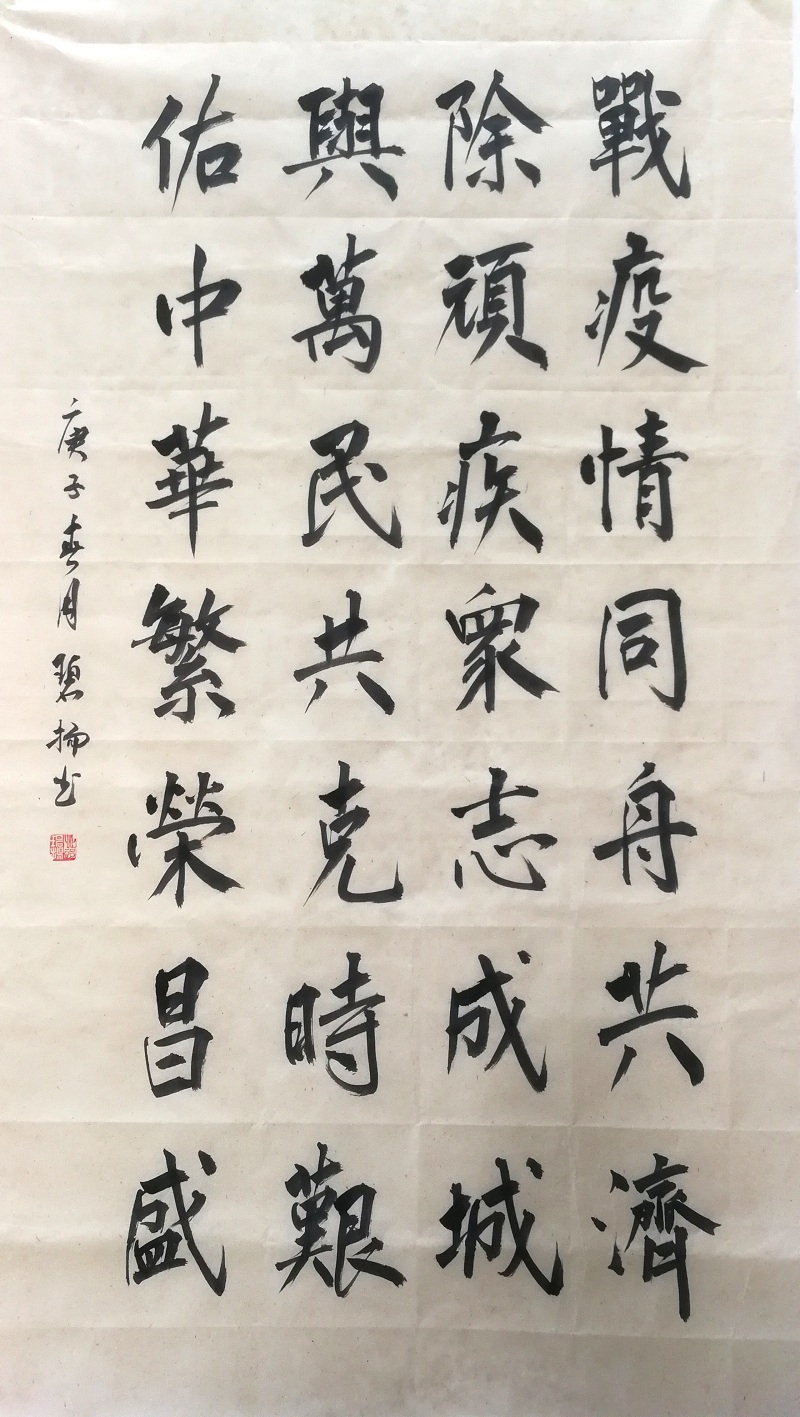 戰疫情同舟共濟
除頑疾衆志成城
與萬民共克時艱
佑中華繁榮昌盛
庚子春月碧揚书